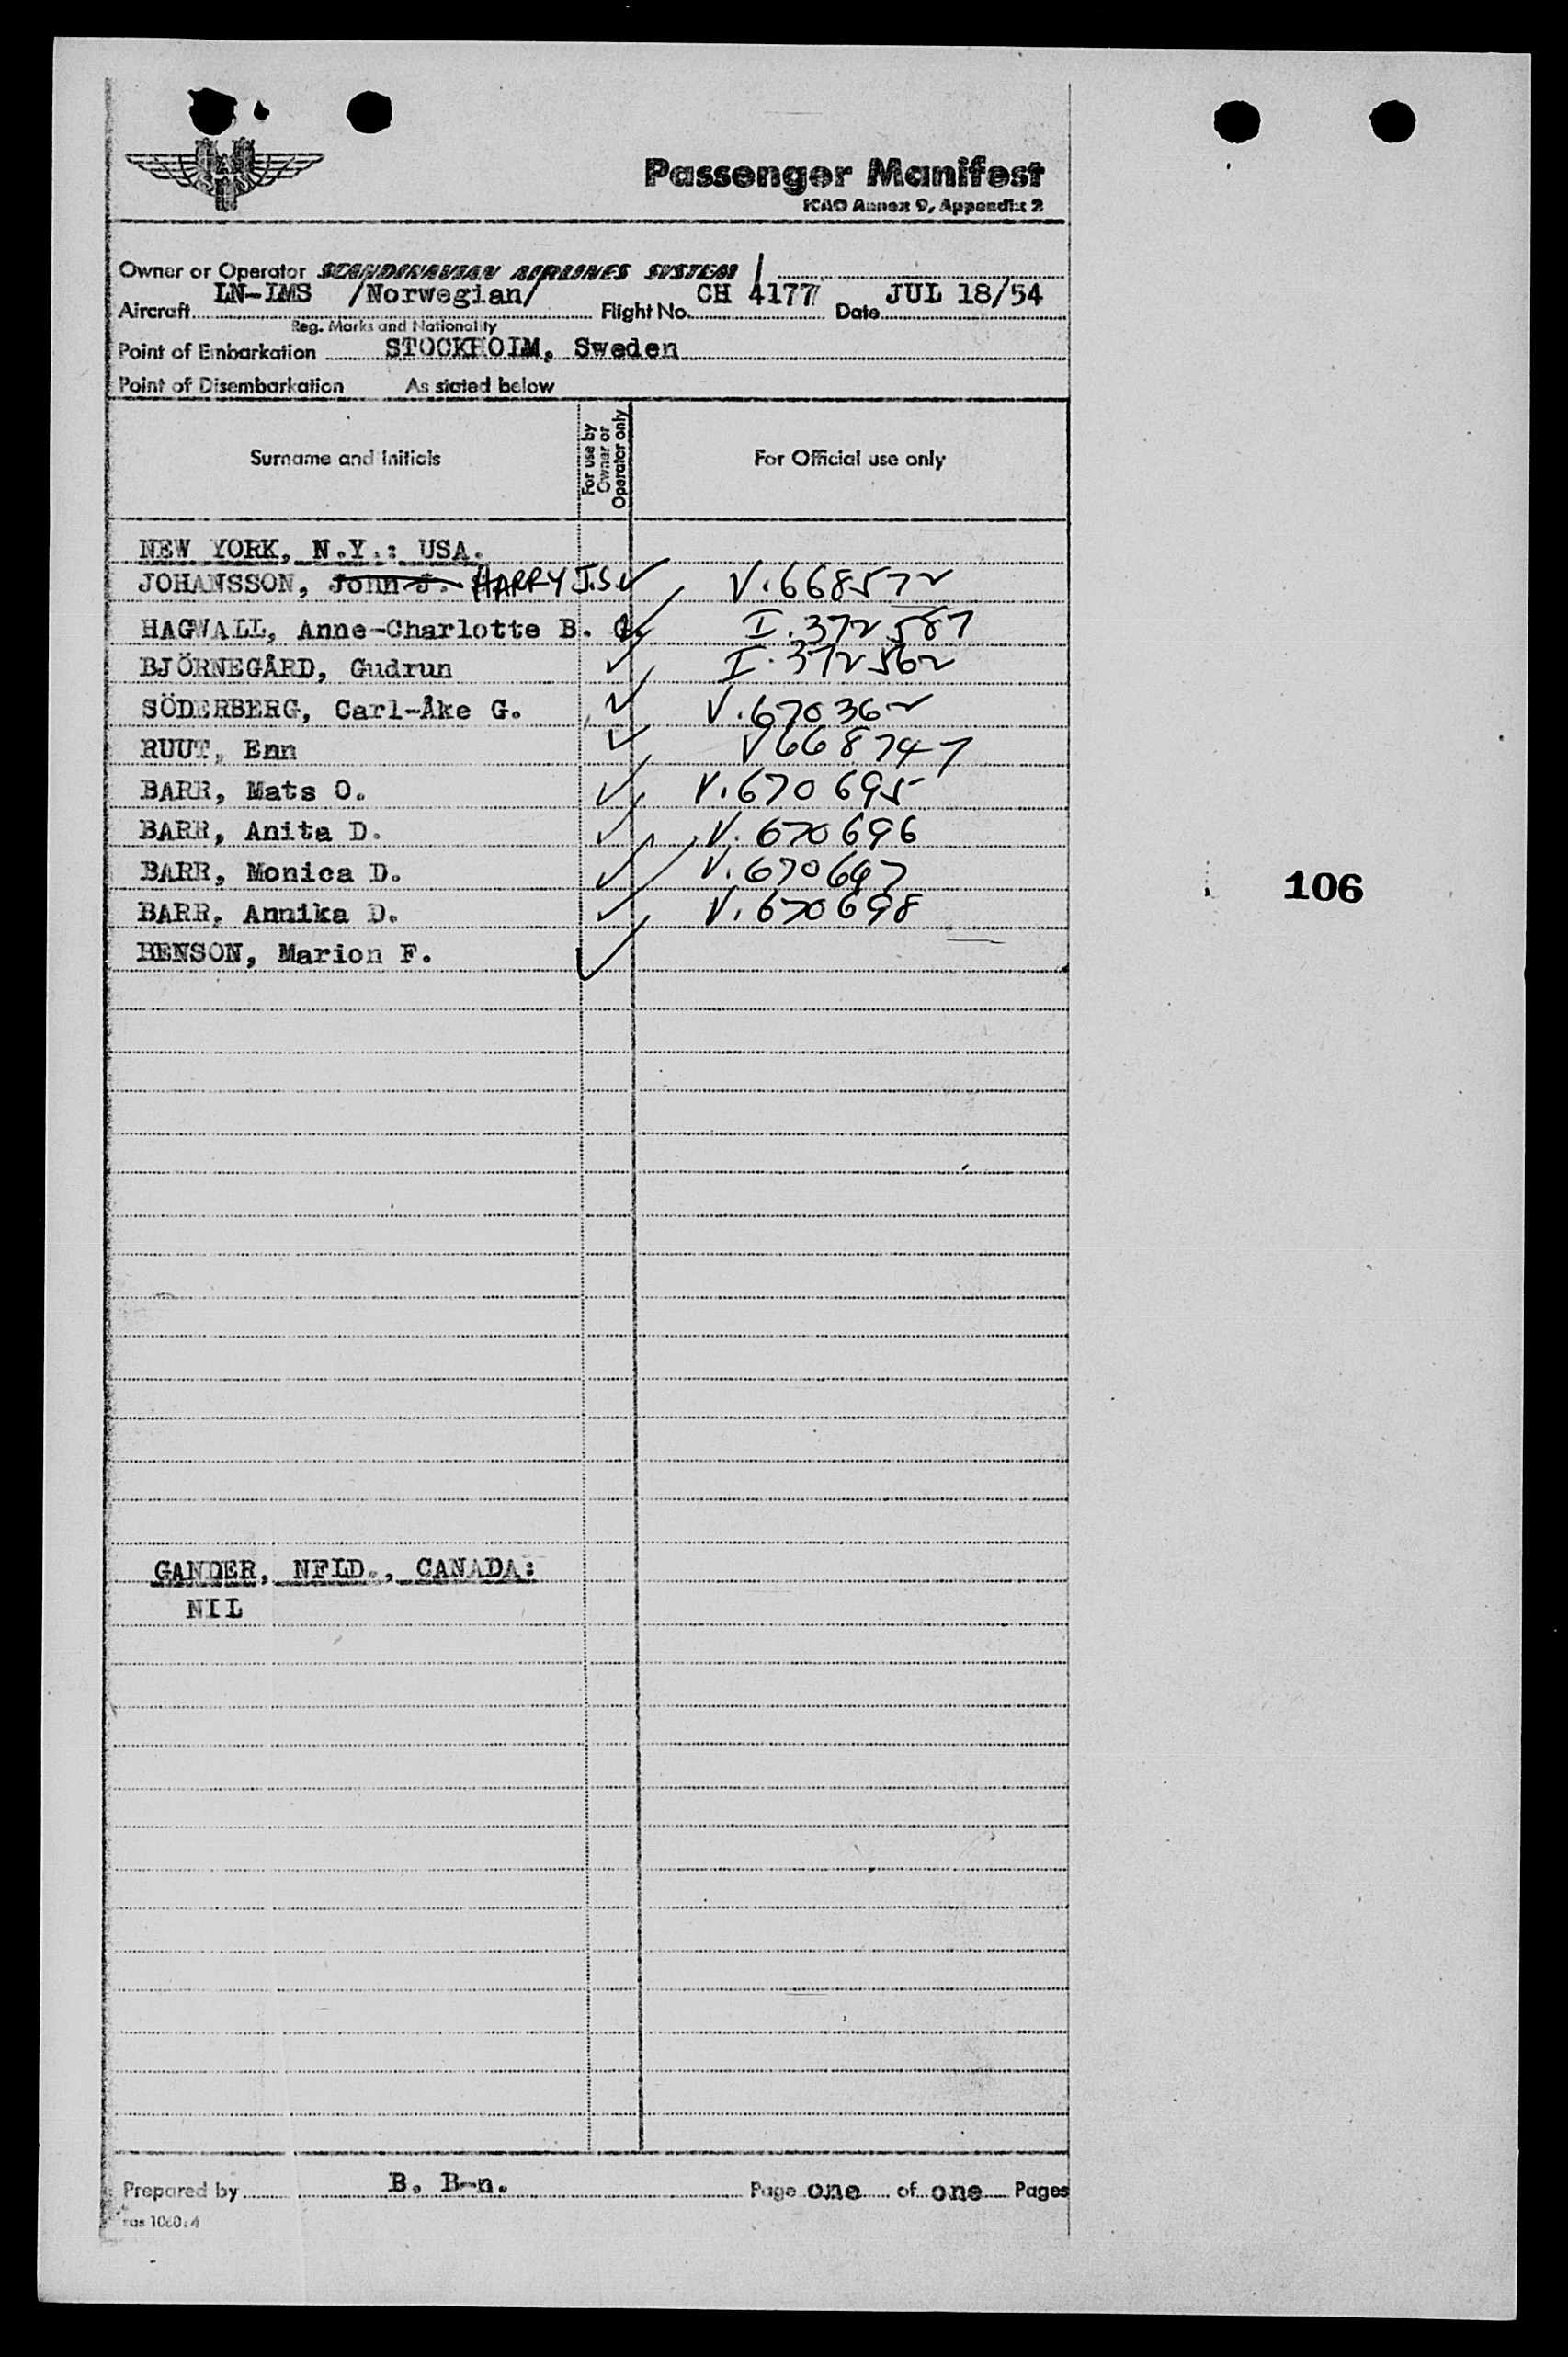 SAS
Passenger Manifest
ICAO Annex 9, Appendix 2
Owner or Operator SCANDINAVIAN AIRLINES SYSTEM
Aircraft LN-LMS /Norwegian/ Flight No. CH 4177 Date JUL 18/54
Reg. Marks and Nationality
Point of Embarkation STOCKHOLM, Sweden
Point of Disembarkation As stated below
Surname and Initials For use by Owner or Operator only For Official use only
NEW YORK, N.Y.: USA.
JOHANSSON, John J. HARRY J.S. ✓ V.668572
HAGWALL, Anne-Charlotte B. G. ✓ I.372587
BJÖRNEGÅRD, Gudrun ✓ I.372562
SÖDERBERG, Carl-Åke G. ✓ V.670362
RUUT, Enn ✓ V668747
BARR, Mats O. ✓ V.670695
BARR, Anita D. ✓ V.670696
BARR, Monica D. ✓ V.670697
106
BARR, Annika D. ✓ V.670698
BENSON, Marion F. ✓
GANDER, NFLD., CANADA:
NIL
Prepared by B. B-n. Page one of one Pages
sas 1060:4